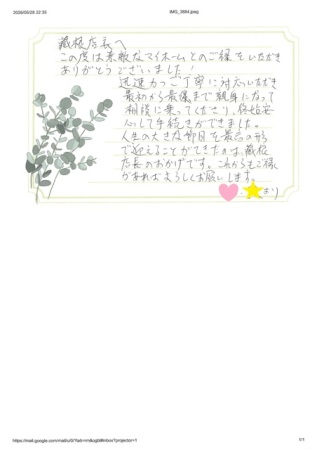 2026/05/26 22:35
IMG_3884.jpeg
藏板店長へ
この度は素敵なマイホームとのご縁をいただき
ありがとうございました!
迅速かつ丁寧に対応いただき
最初から最後まで親身になって
相談に乗ってくださり、終始安
心して手続きができました。
人生の大きな節目を最高の形
で迎えることができたのは、藏板
店長のおかげです。これからもご縁
があればよろしくお願いします。
より
https://mail.google.com/mail/u/0/?tab=rm&ogbl#inbox?projector=1
1/1